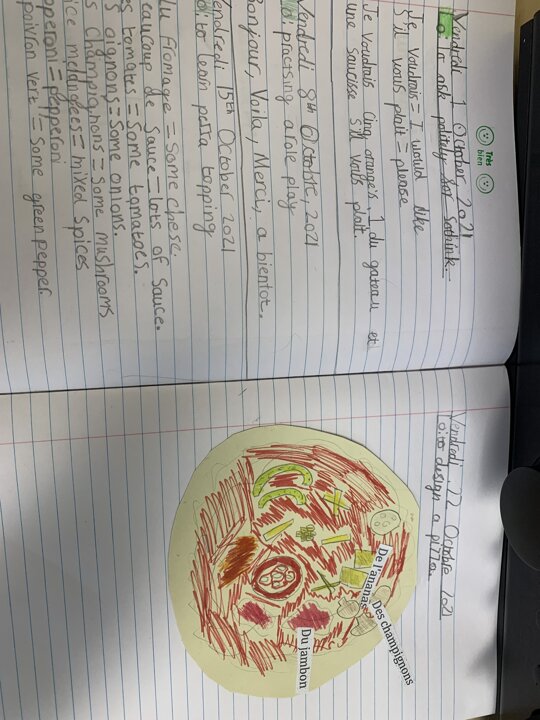 Très
bien
Vendredi 1 October 2021
to ask politely for
Je voudrais = I would like
S'il vous plaît = please
Je voudrais cinq orange's, 1 du gateau et
une saucisse S'il vous plait.
Vendredi 8th Octobre, 2021
practising a role play
Bonjour, Voila, Merci, a bientot.
Vendredi 15th October 2021
topping
du fromage = Some chese.
beaucoup de sauce = lots of sauce.
tomates = Some tomatoes.
oignons = some onions.
champignons = Some mushrooms
melangees = mixed spices
pepperoni = pepperoni
poivron vert = Some green pepper.
Vendredi, 22 Octobre 2021
to design a pizza.
De l'ananas
Des champignons
Du jambon